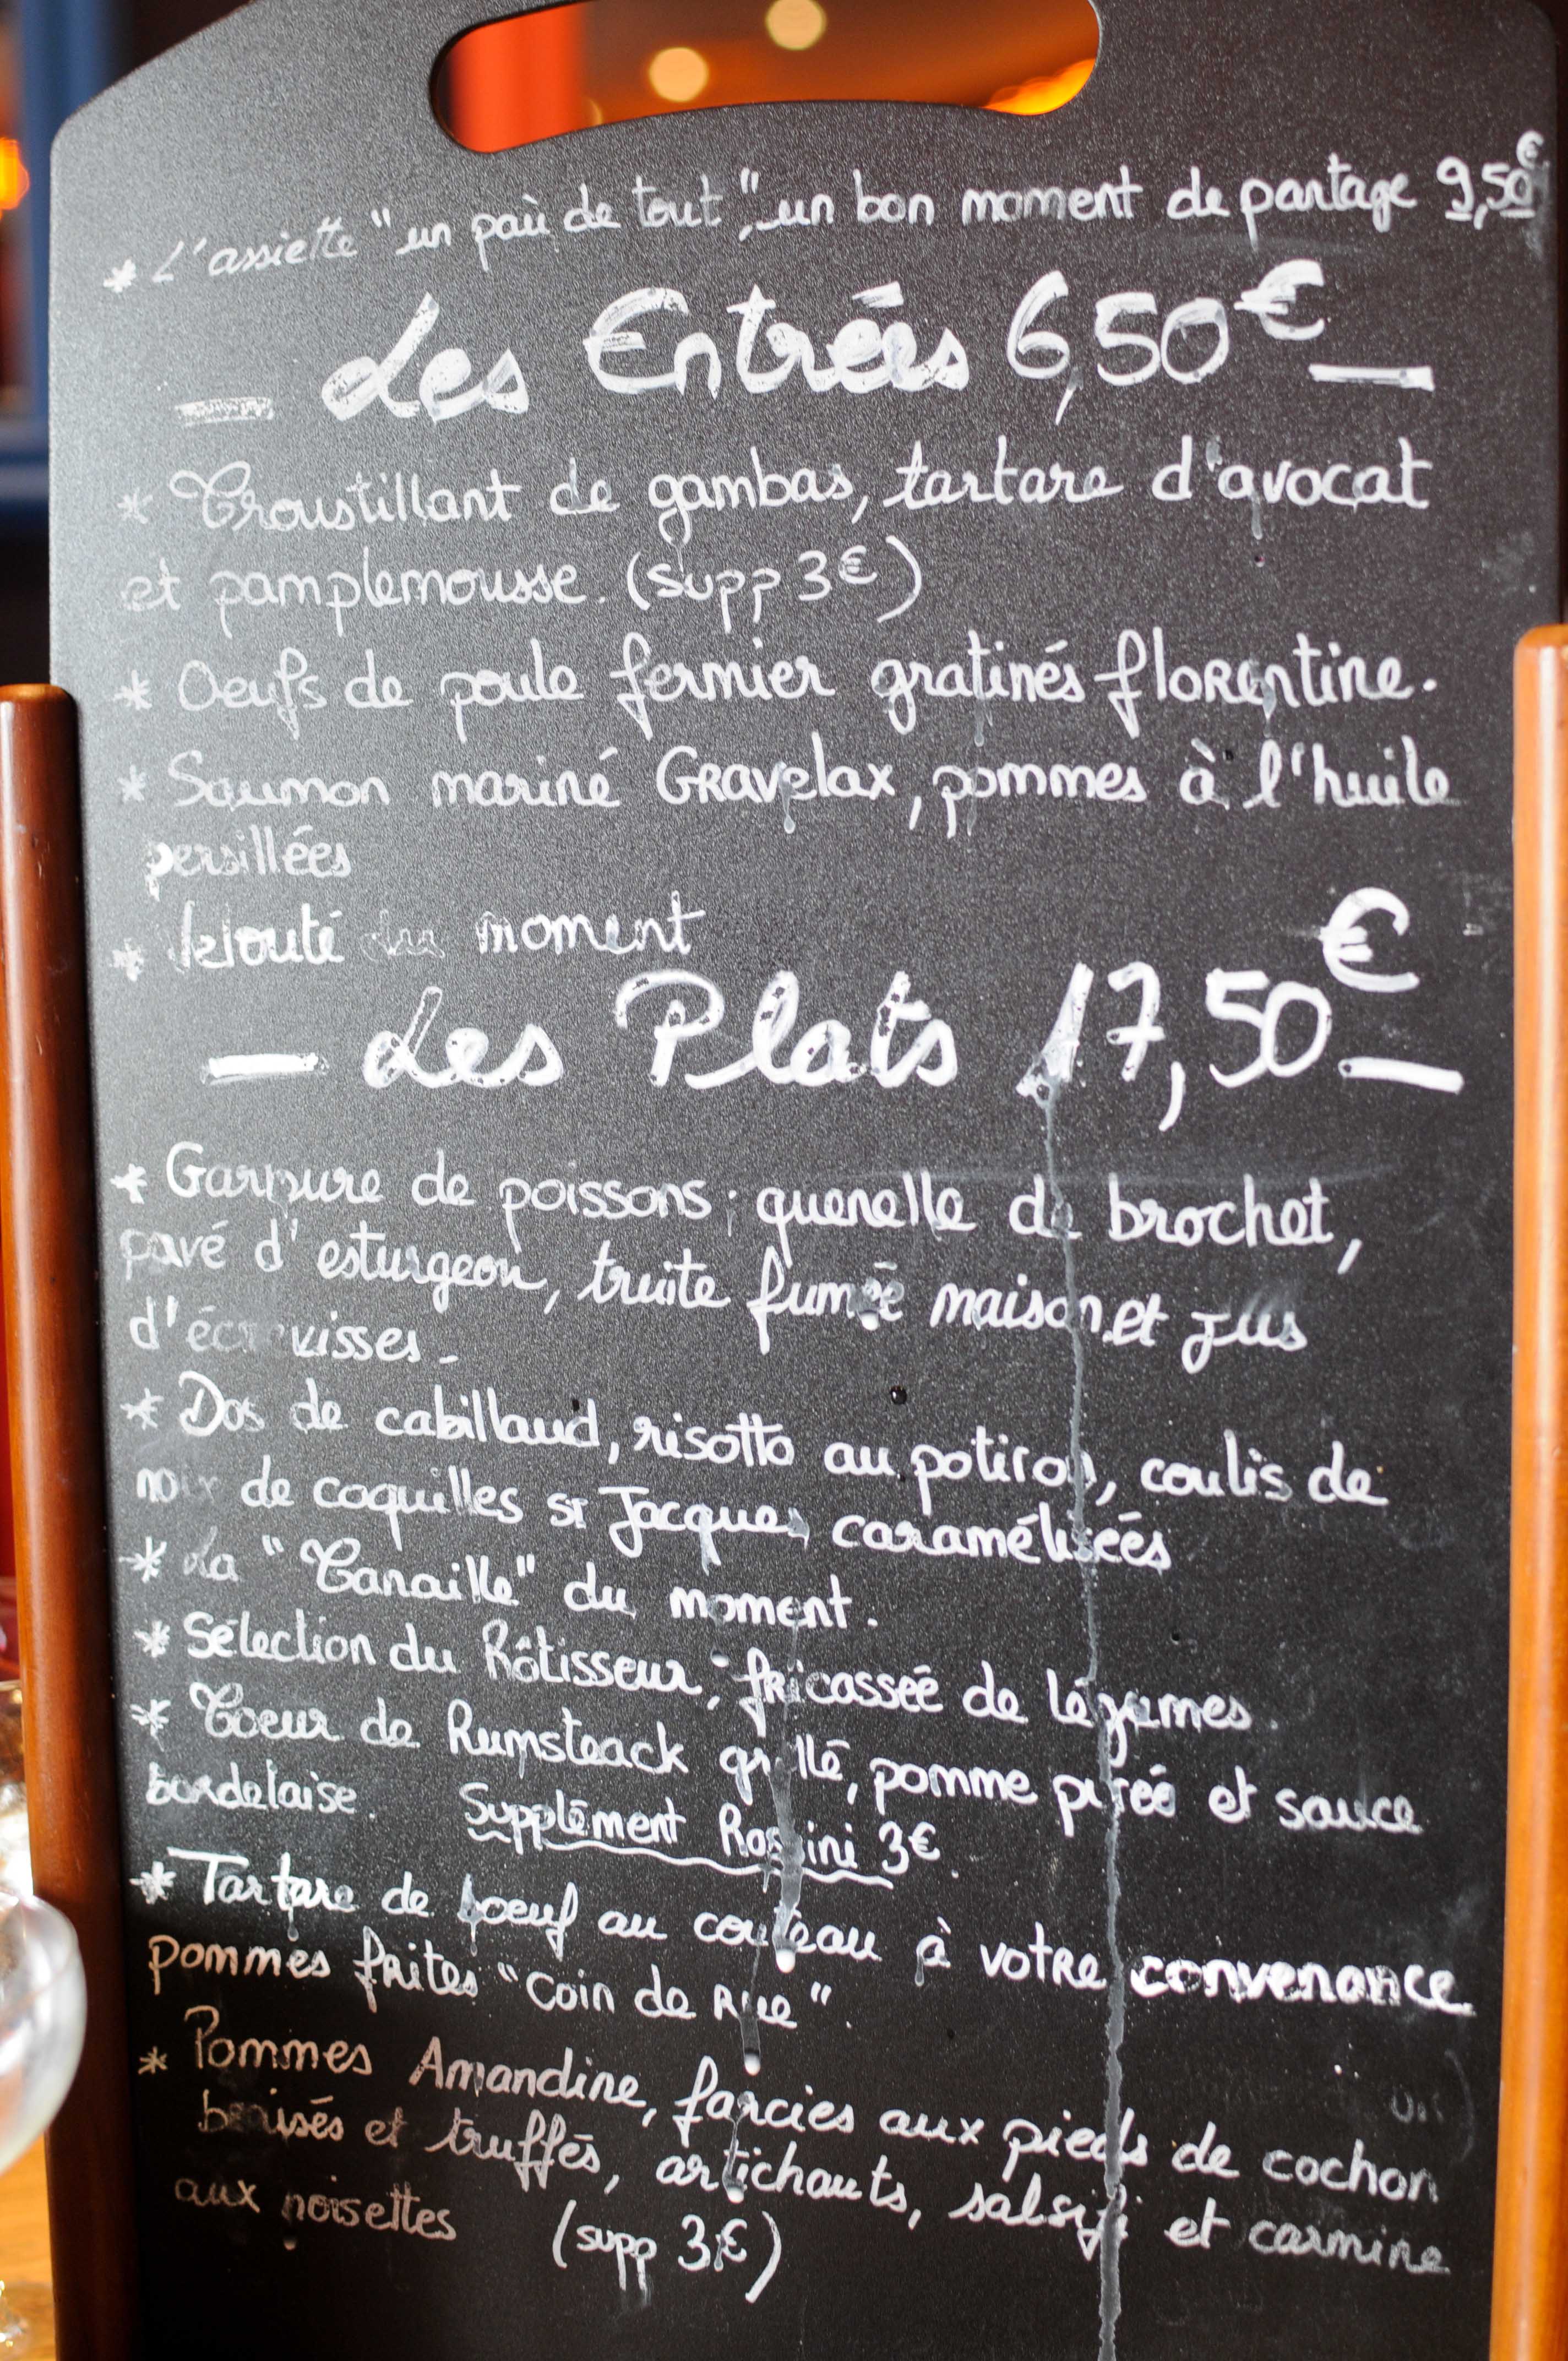 * L'assiette "un paü de tout", un bon moment de partage 9,50€
_ Les Entrées 6,50€ _
* Croustillant de gambas, tartare d'avocat
et pamplemousse. (supp 3€)
* Oeufs de poule fermier gratinés florentine.
* Saumon mariné Gravelax, pommes à l'huile
persillées
* Velouté du moment
_ Les Plats 17,50€ _
* Garpure de poissons ; quenelle de brochet,
pavé d'esturgeon, truite fumée maison et jus
d'écrevisses _
* Dos de cabillaud, risotto au potiron, coulis de
noix de coquilles St Jacques caramélisées
* La "Canaille" du moment.
* Sélection du Rôtisseur ; fricassée de légumes.
* Coeur de Rumsteack grillé, pomme purée et sauce
bordelaise. Supplément Rossini 3€
* Tartare de boeuf au couteau à votre convenance
pommes frites "Coin de Rue".
* Pommes Amandine, farcies aux pieds de cochon
braisés et truffés, artichauts, salsifi et carmine
aux noisettes (supp 3€)